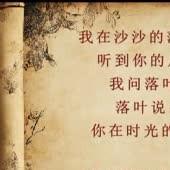 我在沙沙的
听到你的
我问落
落叶说
你在时光的